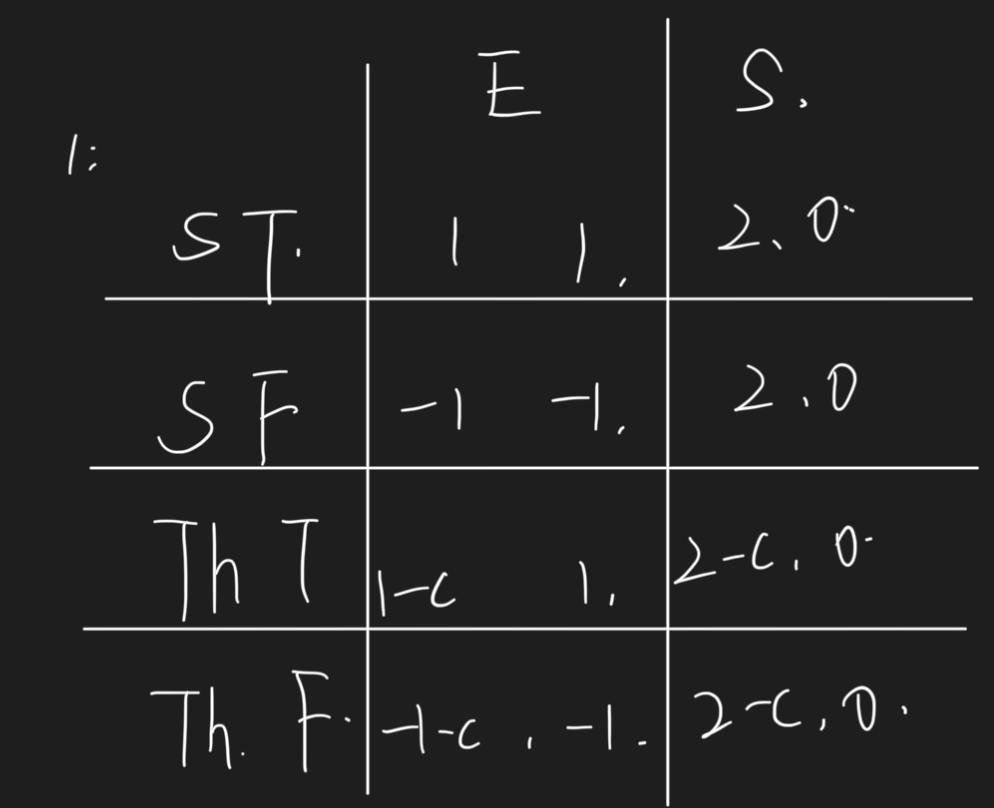 E S.
1:
ST. 1 1. 2.0
SF -1 -1. 2.0
Th T 1-c 1. 2-c. 0
Th. F. -1-c, -1. 2-c, 0.